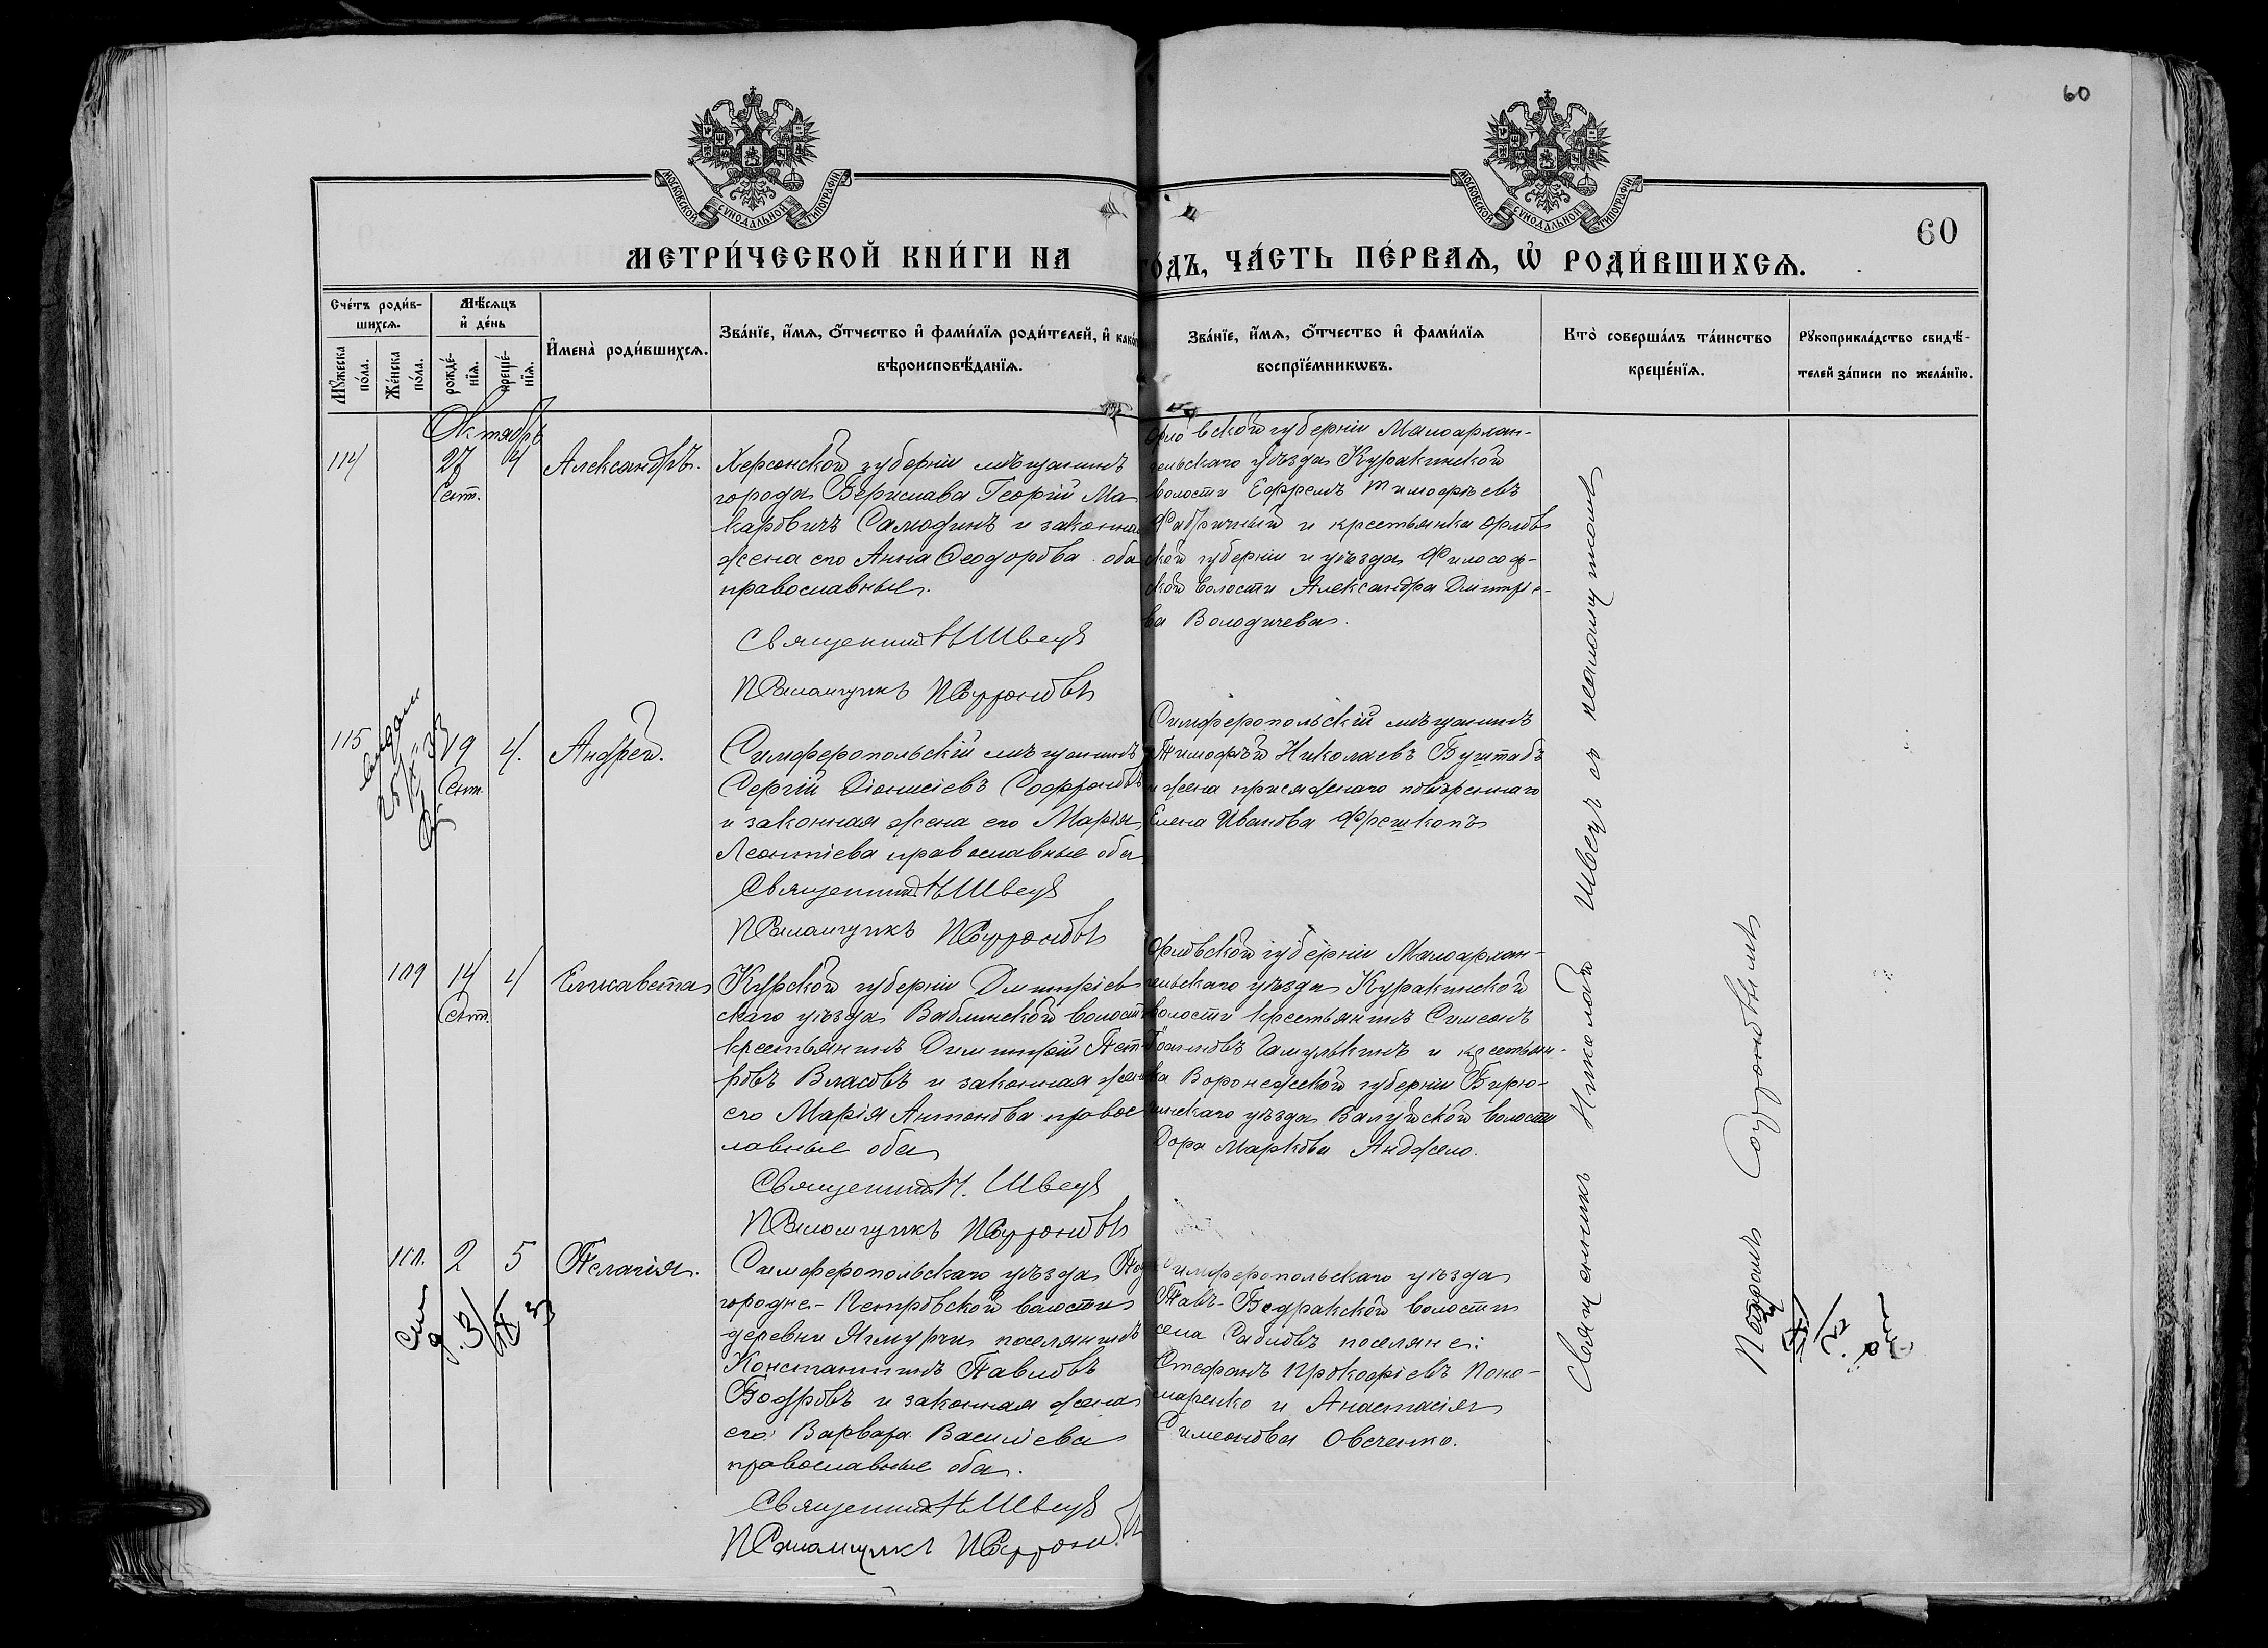 60
МОСКОВСКОЙ СѴНОДАЛЬНОЙ ТИПОГРАФІИ
МОСКОВСКОЙ СѴНОДАЛЬНОЙ ТИПОГРАФІИ
60
МЕТРИ́ЧЕСКОЙ КНИ́ГИ НА ГО́ДЪ, ЧА́СТЬ ПЕ́РВАѦ, Ѡ҆ РОДИ́ВШИХСѦ.
Сче́тъ роди́в-
шихсѧ.
Мꙋ́жеска по́ла.
Же́нска по́ла.
Мѣ́сѧцъ
и҆ де́нь
рожде́-
нїѧ.
креще́-
нїѧ.
И҆мена̀ роди́вшихсѧ.
Зва́нїе, и҆́мѧ, ѻ҆́тчество и҆ фами́лїѧ роди́телей, и҆ како́г
вѣроисповѣ́данїѧ.
Зва́нїе, и҆́мѧ, ѻ҆́тчество и҆ фами́лїѧ
воспрїе́мникѡвъ.
Кто̀ соверша́лъ та́инство
креще́нїѧ.
Рꙋкоприкла́дство свидѣ́-
телей за́писи по жела́нїю.
Октябрь
114 27 4 Александръ.
Сент.
Херсонской губерніи мѣщанинъ
города Берислава Георгій Ма
каровичъ Самофинъ и законная
жена его Анна Ѳеодорова оба
православные.
Священникъ Н Швецъ
Псаломщикъ П Софроновъ
Орловской губерніи Малоархан-
гельскаго уѣзда Куракинской
волости Ефремъ Тимоѳѣевъ
Фабричный и крестьянка Орлов
ской губерніи и уѣзда Философ-
ской волости Александра Димитріе-
ва Володичева.
115 19 4. Андрей.
Сент.
Симферопольскій мѣщанинъ
Сергій Діонисіевъ Софроновъ
и законная жена его Марія
Леонтіева православные оба
Священникъ Н Швецъ
Псаломщикъ П Софроновъ
Симферопольскій мѣщанинъ
Тимоѳей Николаевъ Буштабъ
и жена присяжнаго повѣреннаго
Елена Иванова Фрешкопъ
109 14 4 Елисавета
Сент.
Курской губерніи Димитріев
скаго уѣзда Ваблинской волости
крестьянинъ Димитрій Пет-
ровъ Власовъ и законная жена
его Марія Антонова правос
лавные оба
Священникъ Н. Швецъ
Псаломщикъ П Софроновъ
Орловской губерніи Малоархан-
гельскаго уѣзда Куракинской
волости крестьянинъ Симеонъ
Іоанновъ Гамулькинъ и крестьян-
ка Воронежской губерніи Бирю-
чинскаго уѣзда Валуйской волости
Дора Маркова Анджело.
110. 2 5 Пелагія.
Симферопольскаго уѣзда Под
городне-Петровской волости
деревни Ягмурчи поселянинъ
Константинъ Павловъ
Бодровъ и законная жена
его Варвара Василіева
православные оба.
Священникъ Н Швецъ
Псаломщикъ П Софроновъ
Симферопольскаго уѣзда
Тавъ-Бодракской волости
села Сабловъ поселяне:
Стефанъ Прокофіевъ Поно-
маренко и Анастасія
Симеонова Овсченко.
Священникъ Николай Швецъ съ псаломщикомъ
Софроновымъ